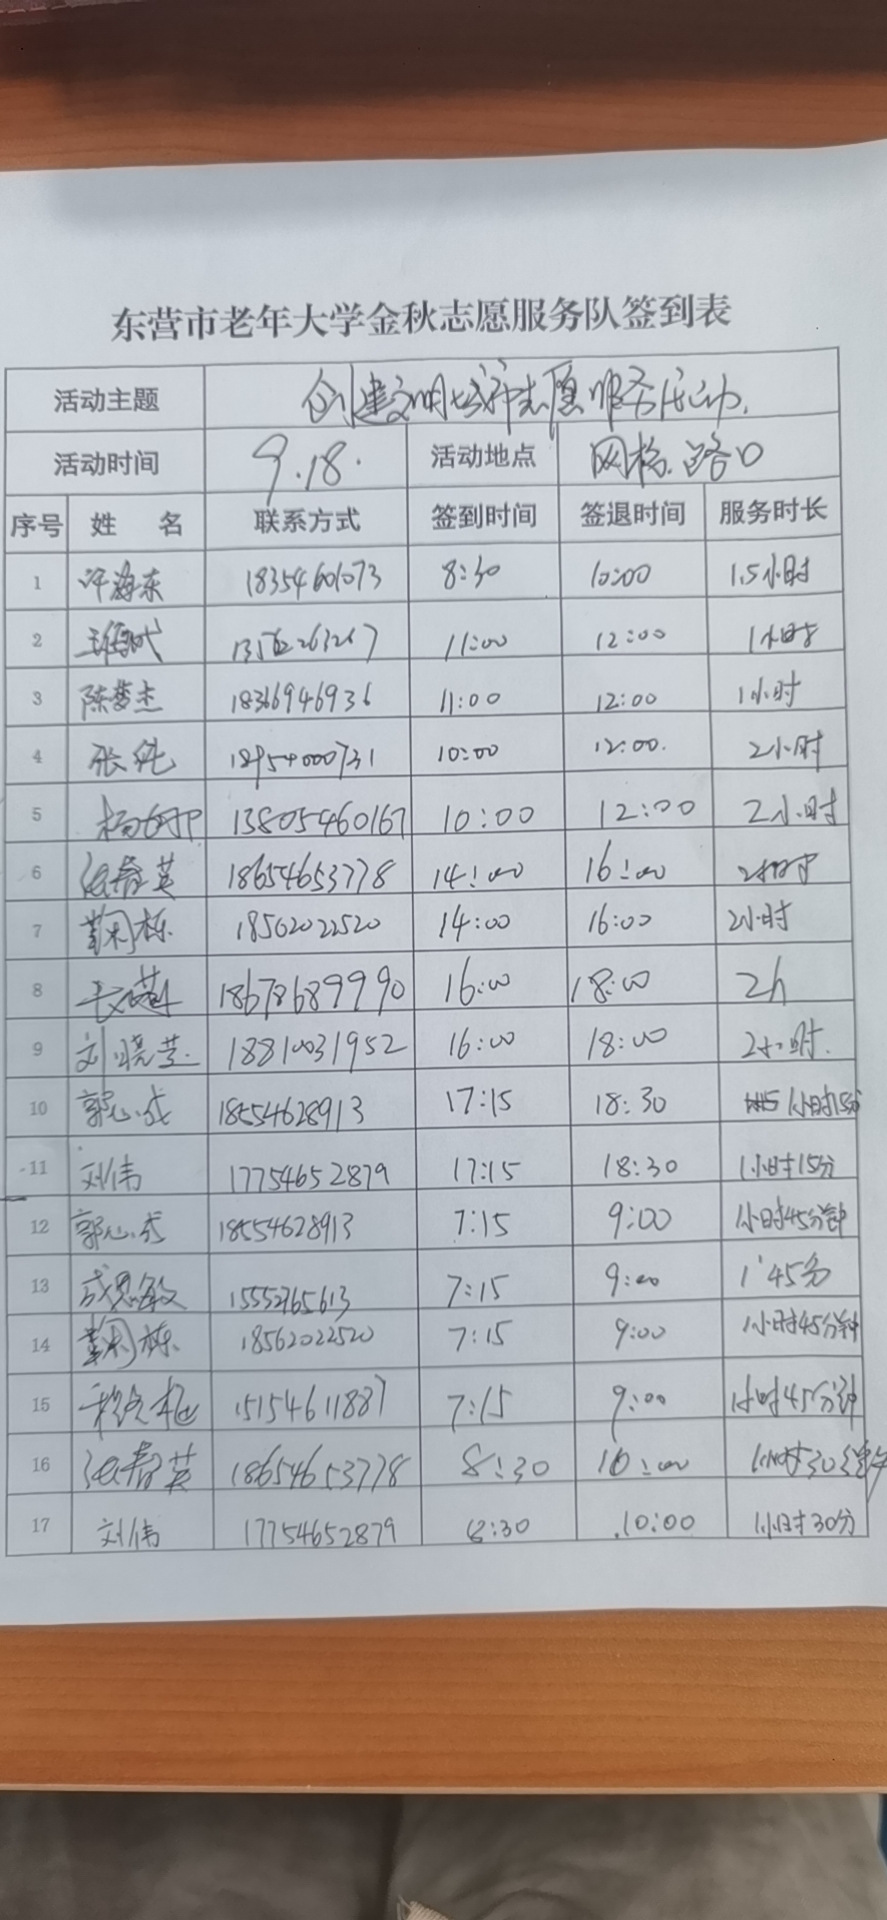 东营市老年大学金秋志愿服务队签到表
活动主题 创建文明城市志愿服务活动.
活动时间 9.18. 活动地点 网格.路口
序号 姓 名 联系方式 签到时间 签退时间 服务时长
1 许海东 18354601073 8:30 10:00 1.5小时
2 11:00 12:00 1小时
3 陈梦杰 18366946936 11:00 12:00 1小时
4 张纯 18954000731 10:00 12:00. 2小时
5 13805460167 10:00 12:00 2小时
6 张春英 18654653778 14:00 16:00 2小时
7 栋 18562022520 14:00 16:00 2小时
8 18678689990 16:00 18:00 2h
9 刘晓芸 18810031952 16:00 18:00 2小时.
10 郭心成 18554628913 17:15 18:30 1小时15分
11 刘伟 17754652879 17:15 18:30 1小时15分
12 郭心成 18554628913 7:15 9:00 1小时45分钟
13 成思敏 7:15 9:00 1'45分
14 栋 18562022520 7:15 9:00 1小时45分钟
15 15154611887 7:15 9:00 1小时45分钟
16 张春英 18654653778 8:30 10:00 1小时30分钟
17 刘伟 17754652879 8:30 10:00 1小时30分